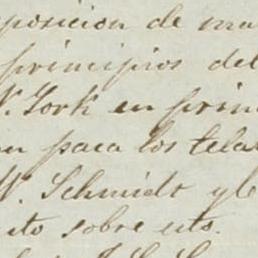 posicion de ma
principios del
N. York en prin
para los telar
W. Schmidt y le
ito sobre esto.